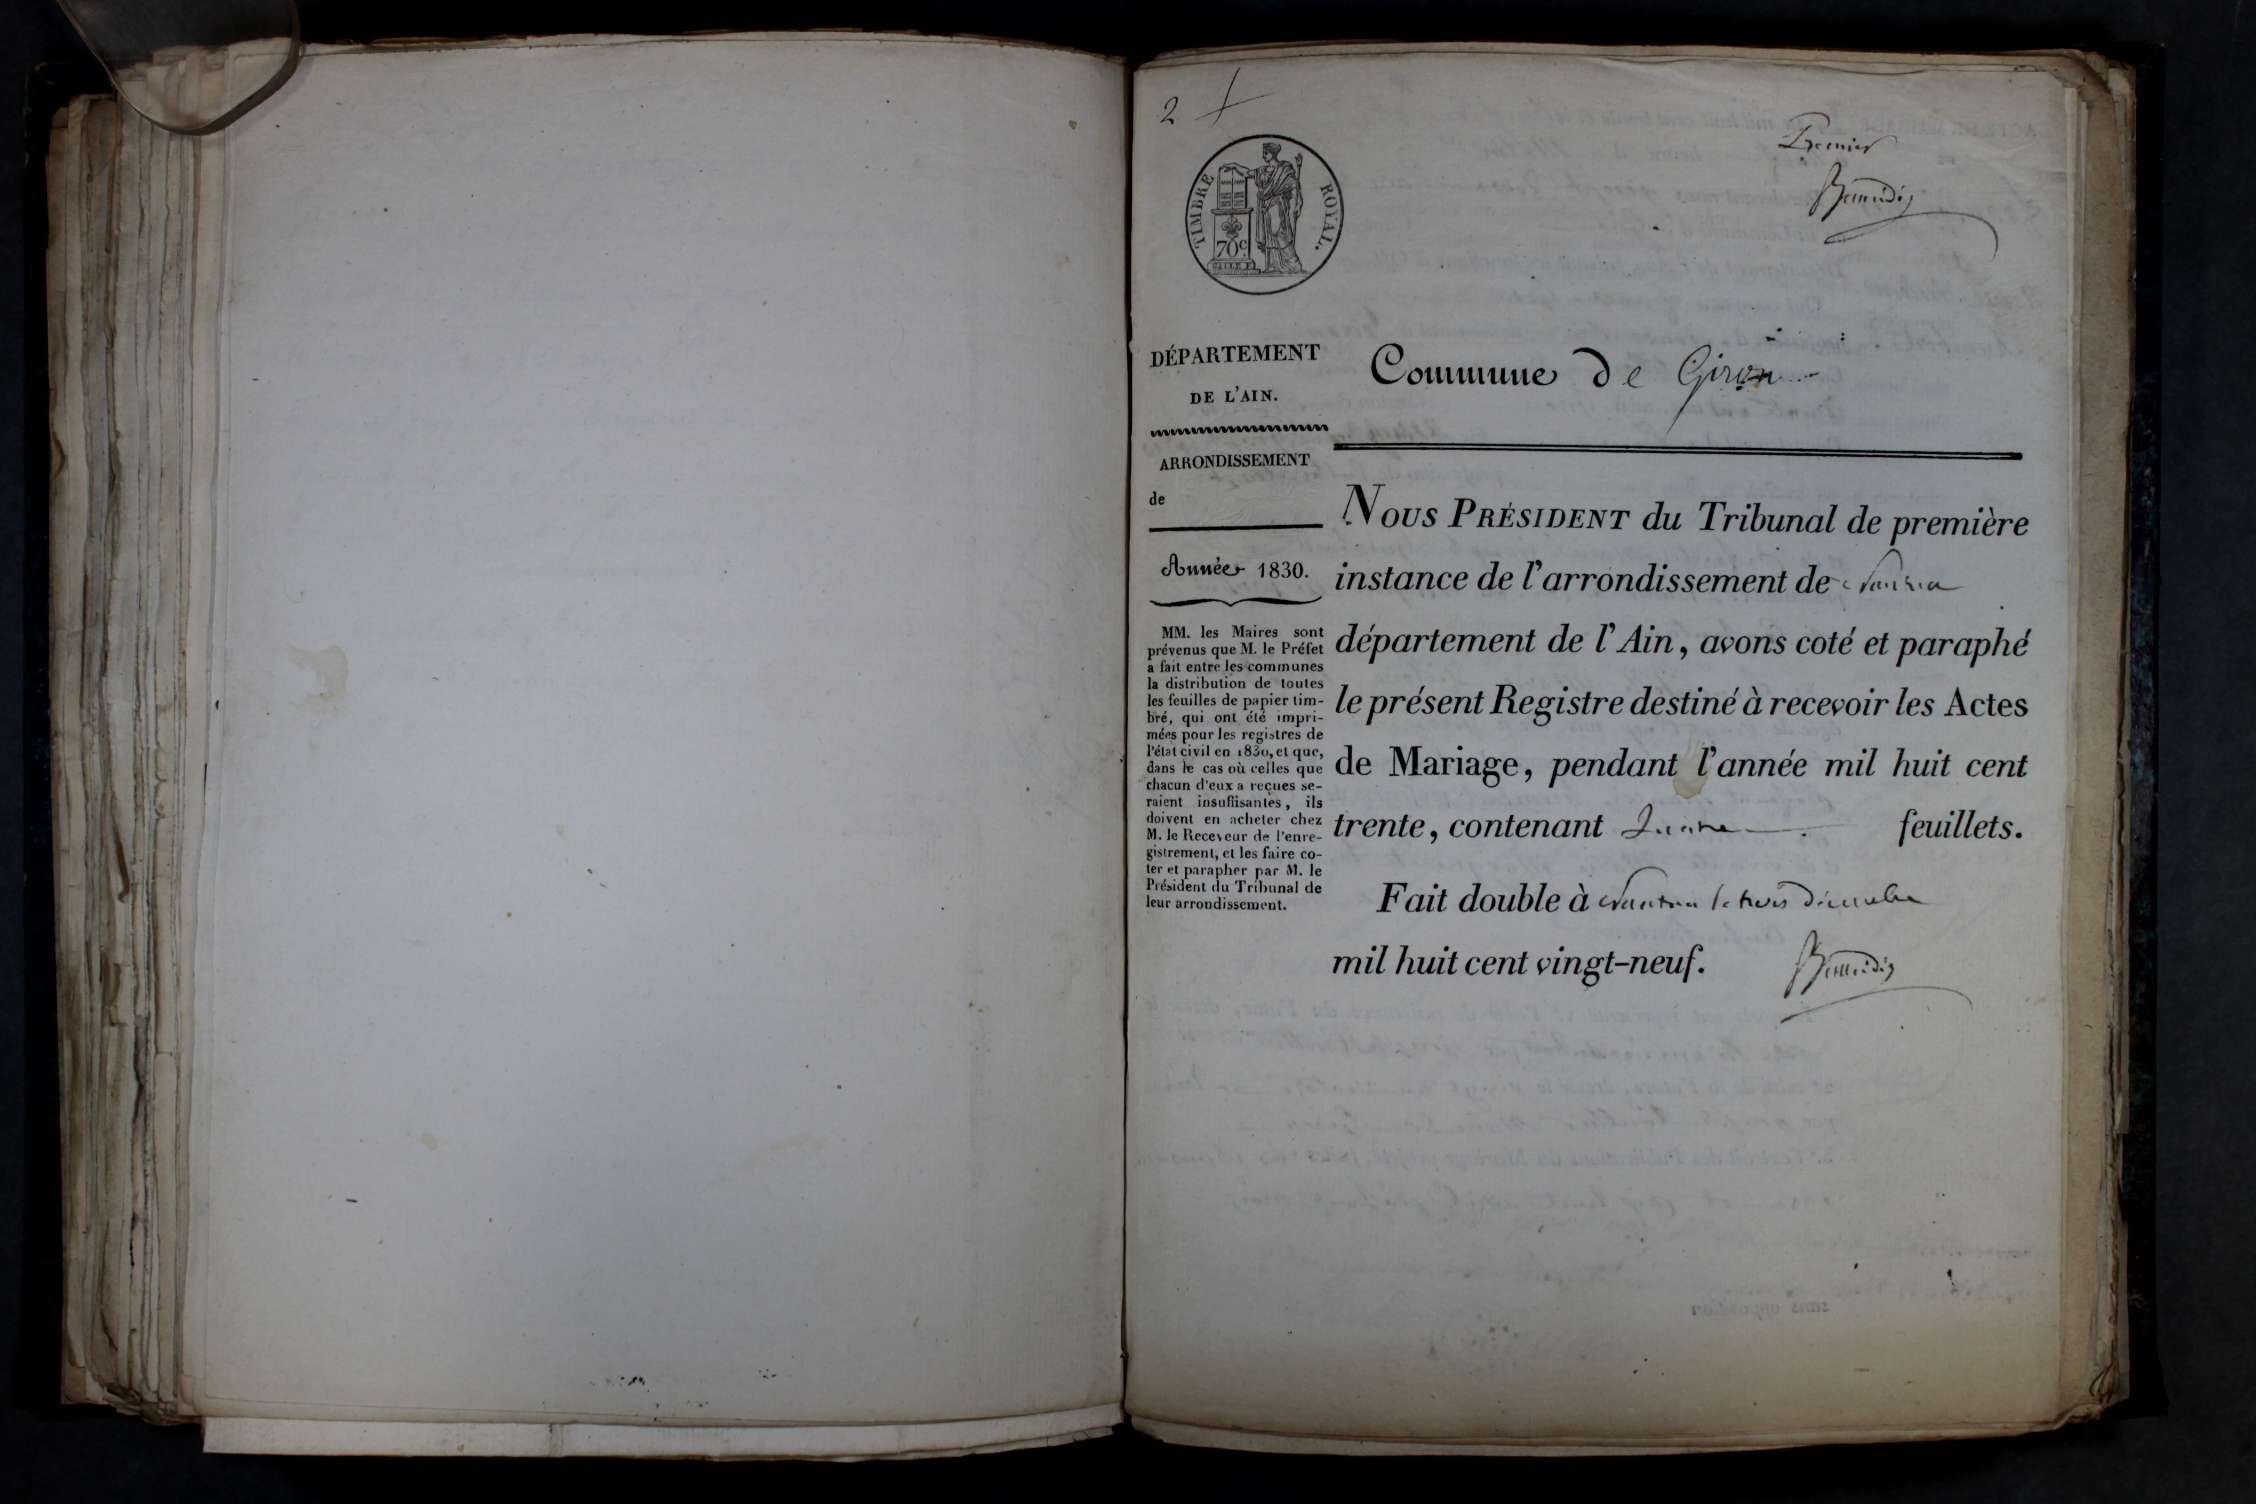 2
Premier
TIMBRE ROYAL.
70c
DÉPARTEMENT
DE L'AIN.
ARRONDISSEMENT
de
Année 1830.
MM. les Maires sont
prévenus que M. le Préfet
a fait entre les communes
la distribution de toutes
les feuilles de papier tim-
bré, qui ont été impri-
mées pour les registres de
l'état civil en 1830, et que,
dans le cas où celles que
chacun d'eux a reçues se-
raient insuffisantes, ils
doivent en acheter chez
M. le Receveur de l'enre-
gistrement, et les faire co-
ter et parapher par M. le
Président du Tribunal de
leur arrondissement.
Commune de Giron
NOUS PRÉSIDENT du Tribunal de première
instance de l'arrondissement de Nantua
département de l'Ain, avons coté et paraphé
le présent Registre destiné à recevoir les Actes
de Mariage, pendant l'année mil huit cent
trente, contenant quatre feuillets.
Fait double à Nantua le trois décembre
mil huit cent vingt-neuf.